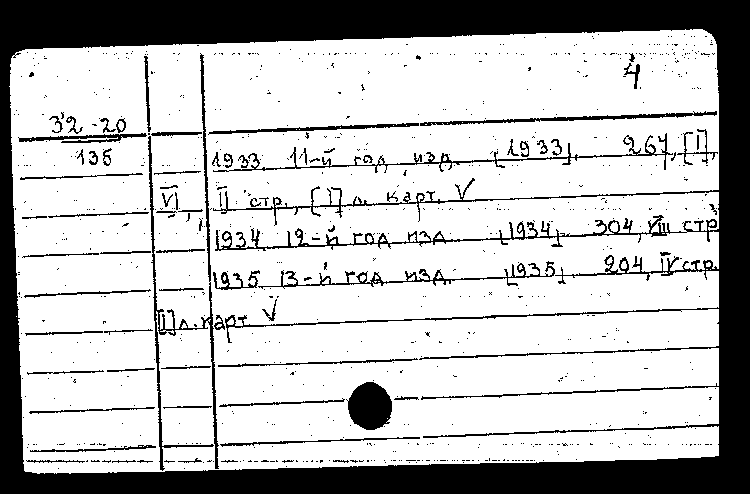 4
32-20
135
1933 11-й год изд. [1933]. 267, [I],
VI, II стр., [I] л. карт. V
1934 12-й год изд. [1934] 304, VIII стр
1935 13-й год изд. [1935] 204, IV стр.
[I] л. карт V